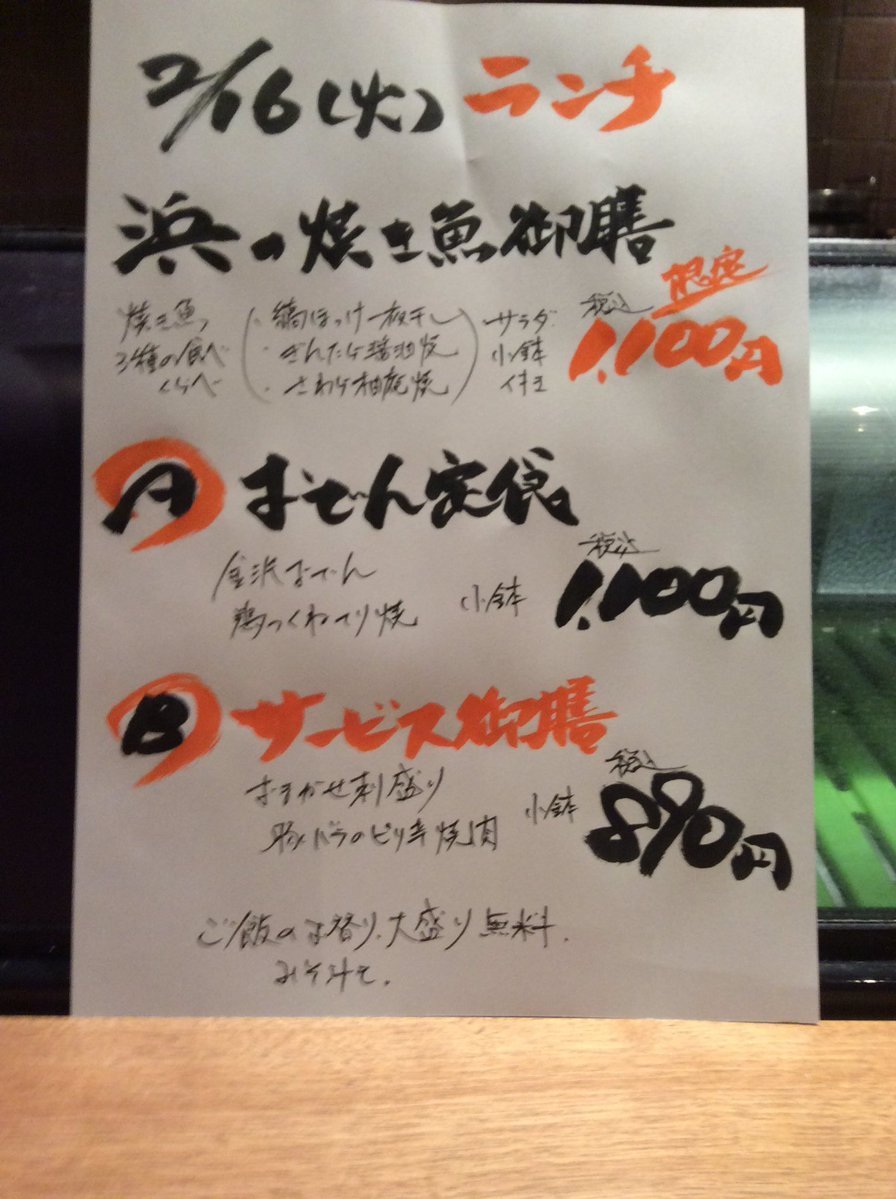 2/16(火)ランチ
浜の焼き魚御膳
限定
焼き魚
3種の食べ
くらべ
・縞ほっけ一夜干し
・ぎんだら醤油焼
・さわら柚庵焼
サラダ
小鉢
付
税込
1,100円
A おでん定食
金沢おでん
鶏つくねてり焼
小鉢
税込
1,100円
B サービス御膳
おまかせ刺盛り
豚バラのピリ辛焼肉
小鉢
税込
890円
ご飯のお替り、大盛り無料。
みそ汁も。